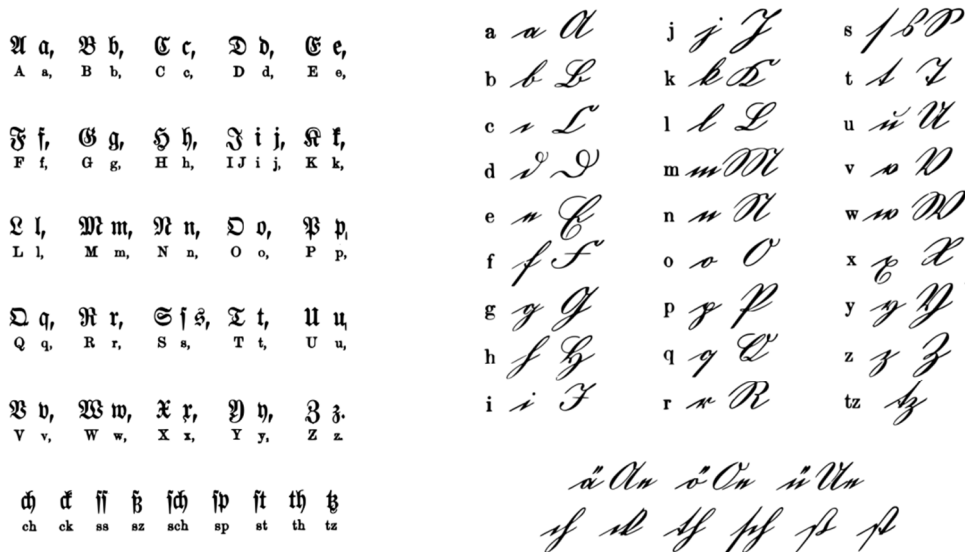 A a, B b, C c, D d, E e,
A a, B b, C c, D d, E e,
F f, G g, H h, I i j, K k,
F f, G g, H h, IJ i j, K k,
L l, M m, N n, O o, P p,
L l, M m, N n, O o, P p,
Q q, R r, S ſ s, T t, U u,
Q q, R r, S s, T t, U u,
V v, W w, X x, Y y, Z z.
V v, W w, X x, Y y, Z z.
ch ck ſſ ß ſch ſp ſt th tz
ch ck ss sz sch sp st th tz
a a A
b b B
c c C
d d D
e e E
f f F
g g G
h h H
i i I
j j J
k k K
l l L
m m M
n n N
o o O
p p P
q q Q
r r R
s ſ s S
t t T
u u U
v v V
w w W
x x X
y y Y
z z Z
tz tz
ä Ae ö Oe ü Ue
ch ck th ſch ß ſt